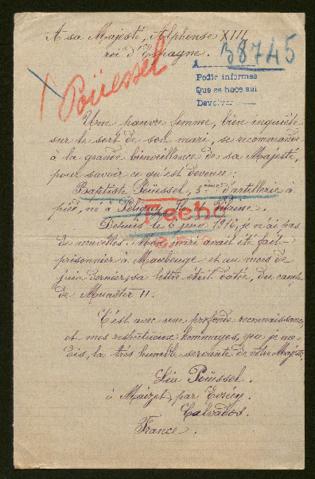 A sa Majesté, Alphonse XIII
roi d'Espagne.
38745
A
Pedir informes
Que se hace aui
Devolver
Poüessel
Une pauvre femme, bien inquiète
sur le sort de son mari, se recommande
à la grande bienveillance de sa Majesté,
pour savoir ce qu'est devenu:
Baptiste Poüessel, 3ème d'artillerie à
pied, né à
Fecho
Depuis le 6 juin 1916, je n'ai pas
de nouvelles. Mon mari avait été fait
prisonnier à Maubeuge et au mois de
juin dernier, sa lettre était datée, du camp
de Munster II.
C'est avec une profonde reconnaissance,
et mes respectueux hommages, que je me
dis, la très humble servante de votre Majesté
Léa Poüessel.
à Maizet, par Evrecy
Calvados.
France.